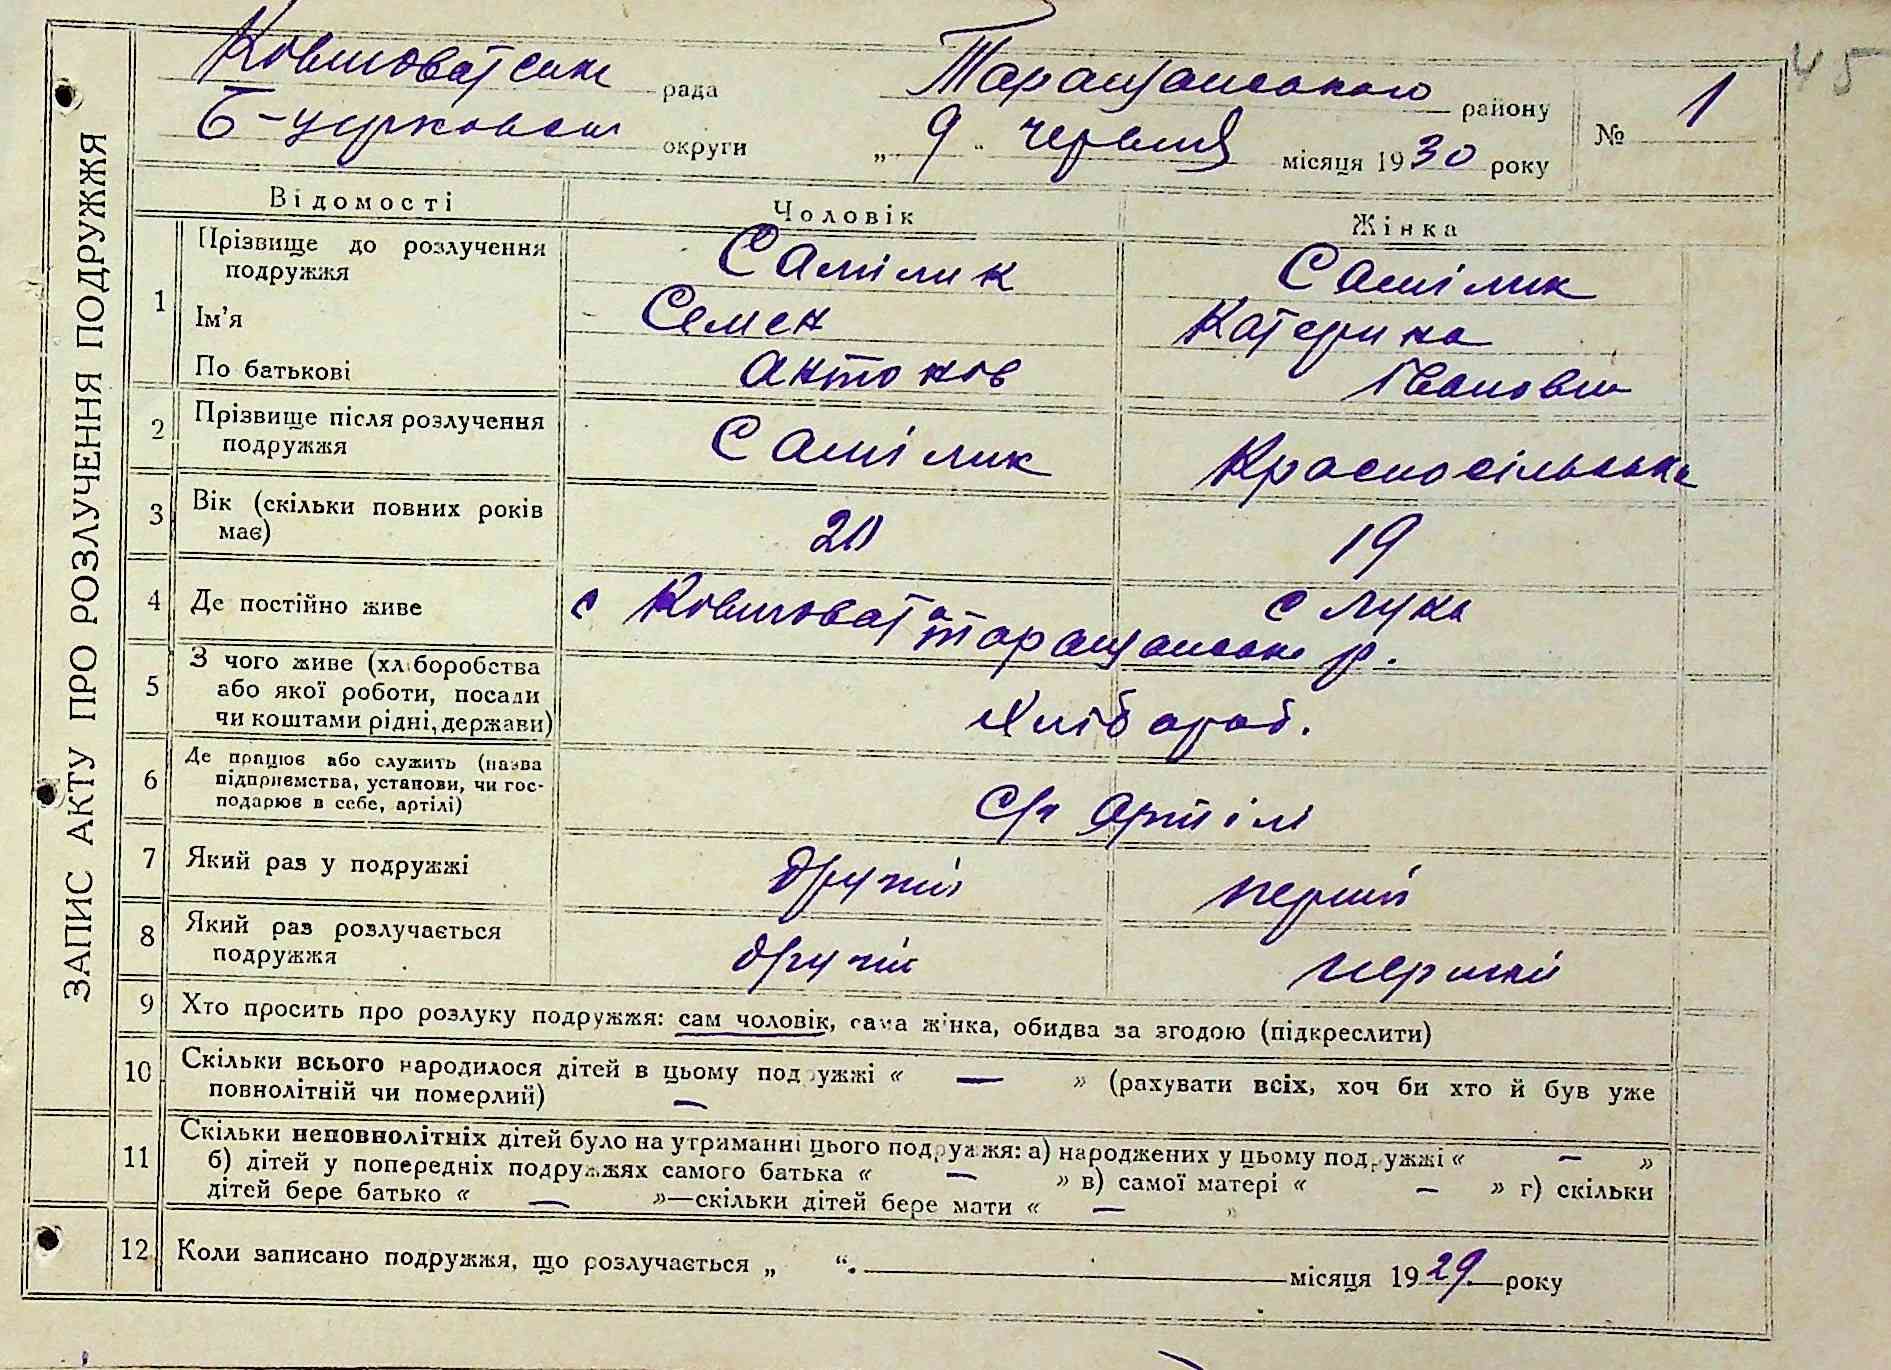 45
ЗАПИС АКТУ ПРО РОЗЛУЧЕННЯ ПОДРУЖЖЯ
Ковшоватська рада Таращанського району № 1
Б-церковськ округи „ 9 “ червня місяця 1930 року
Відомості Чоловік Жінка
1 Прізвище до розлучення подружжя Самілик Самілик
Ім’я Семен Катерина
По батькові Антонов Івановна
2 Прізвище після розлучення подружжя Самілик Красносільська
3 Вік (скільки повних років має) 20 19
4 Де постійно живе с Ковшовата с Лука
Таращанськ р.
5 З чого живе (хліборобства або якої роботи, посади чи коштами рідні, держави) Хлібороб.
6 Де працює або служить (назва підприємства, установи, чи господарює в себе, артілі) С/г Артілі
7 Який раз у подружжі другий перший
8 Який раз розлучається подружжя другий перший
9 Хто просить про розлуку подружжя: сам чоловік, сама жінка, обидва за згодою (підкреслити)
10 Скільки всього народилося дітей в цьому подружжі « — » (рахувати всіх, хоч би хто й був уже
повнолітній чи померлий) —
11 Скільки неповнолітніх дітей було на утриманні цього подружжя: а) народжених у цьому подружжі « — »
б) дітей у попередніх подружжях самого батька « — » в) самої матері « — » г) скільки
дітей бере батько « — »—скільки дітей бере мати « — »
12 Коли записано подружжя, що розлучається „ “. місяця 1929 року